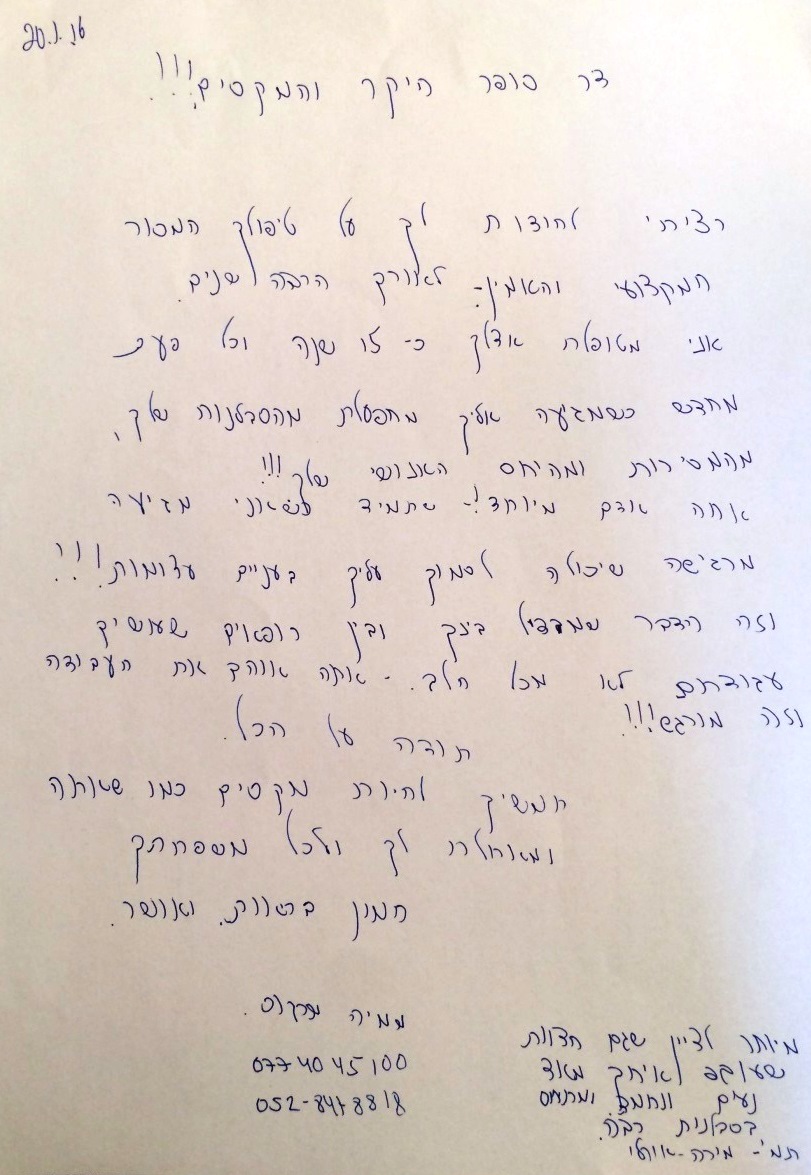 20.1.16
דר סופר היקר והמקסים!!!
רציתי להודות לך על טיפולך המסור
המקצועי והאמין- לאורך הרבה שנים.
אני מטופלת אצלך כ- 15 שנה וכל פעם
מחדש כשמגיעה אליך מתפעלת מהסבלנות שלך,
מהמסירות ומהיחס האנושי שלך!!!
אתה אדם מיוחד!- שתמיד כשאני מגיעה
מרגישה שיכולה לסמוך עליך בעניים עצומות!!!
וזה הדבר שמבדיל בינך ובין רופאים שעושים
עבודתם לא מכל הלב. - אתה אוהב את העבודה
וזה מורגש!!!
תודה על הכל.
תמשיך להיות מקסים כמו שאתה
ומאחלת לך ולכל משפחתך
המון בריאות, ואושר.
ממיה
077 40 45 100
052-8478818
מיותר לציין שגם הצוות
שעובד איתך מאוד
נעים ונחמד ומתיחס
בסבלנית רבה.
תמי- מירה-